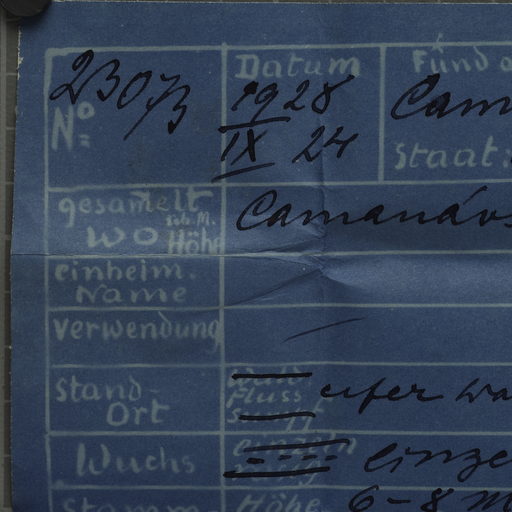 23073
Nº
Datum
1928
IX 24
Fund o
Cam
Staat:
gesam̄elt
wo
üb. M.
Höhe
Camanáos
einheim.
Name
Verwendung
Stand-
Ort
Fluss
ufer wa
Wuchs
einzeln
einze
Stamm
Höhe
6-8 m